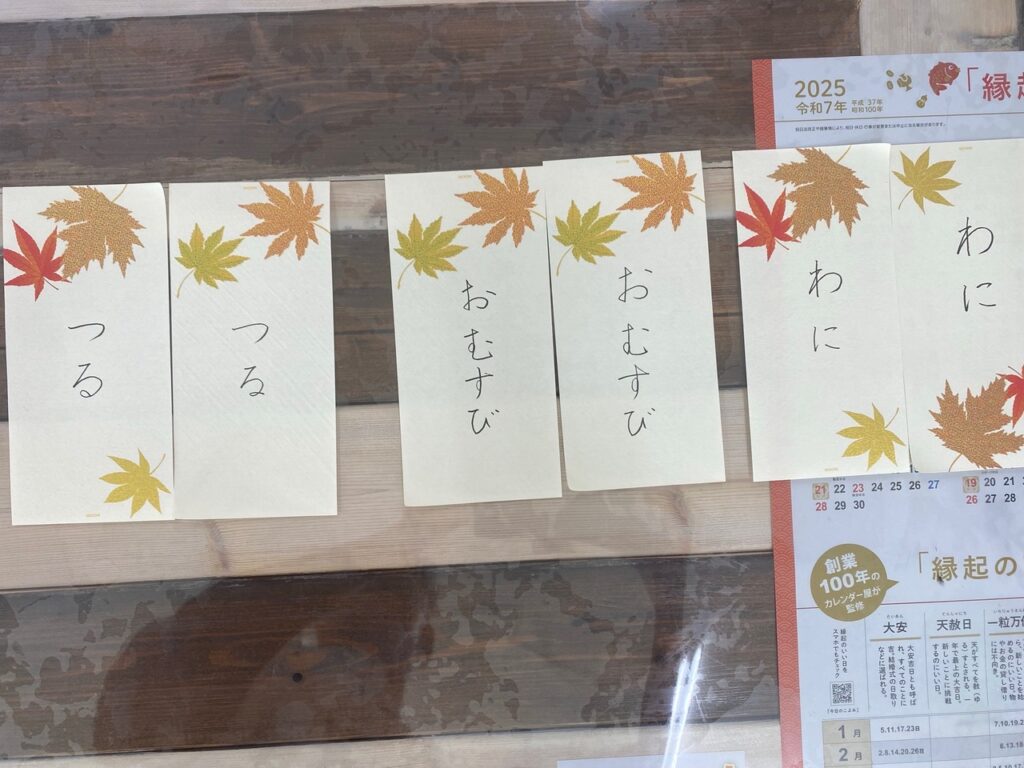 つる
つる
おむすび
おむすび
わに
わに
2025
令和7年 平成 37年
昭和100年
「縁起
21 22 23 24 25 26 27
28 29 30
19 20 21
26 27 28
創業
100年の
カレンダー屋が
監修
「縁起の
縁起のいい日を
スマホでもチェック
「今日のこよみ」
たいあん
大安
大安吉日とも呼ば
れ、すべてのことに
吉。結婚式の日取り
などに選ばれる。
てんしゃにち
天赦日
天がすべてを赦(ゆ
る)すとされる、一
年で最上の大吉日。
新しいことに挑戦
するのにいい日。
一粒万倍
1月 5.11.17.23日
2月 2.8.14.20.26日